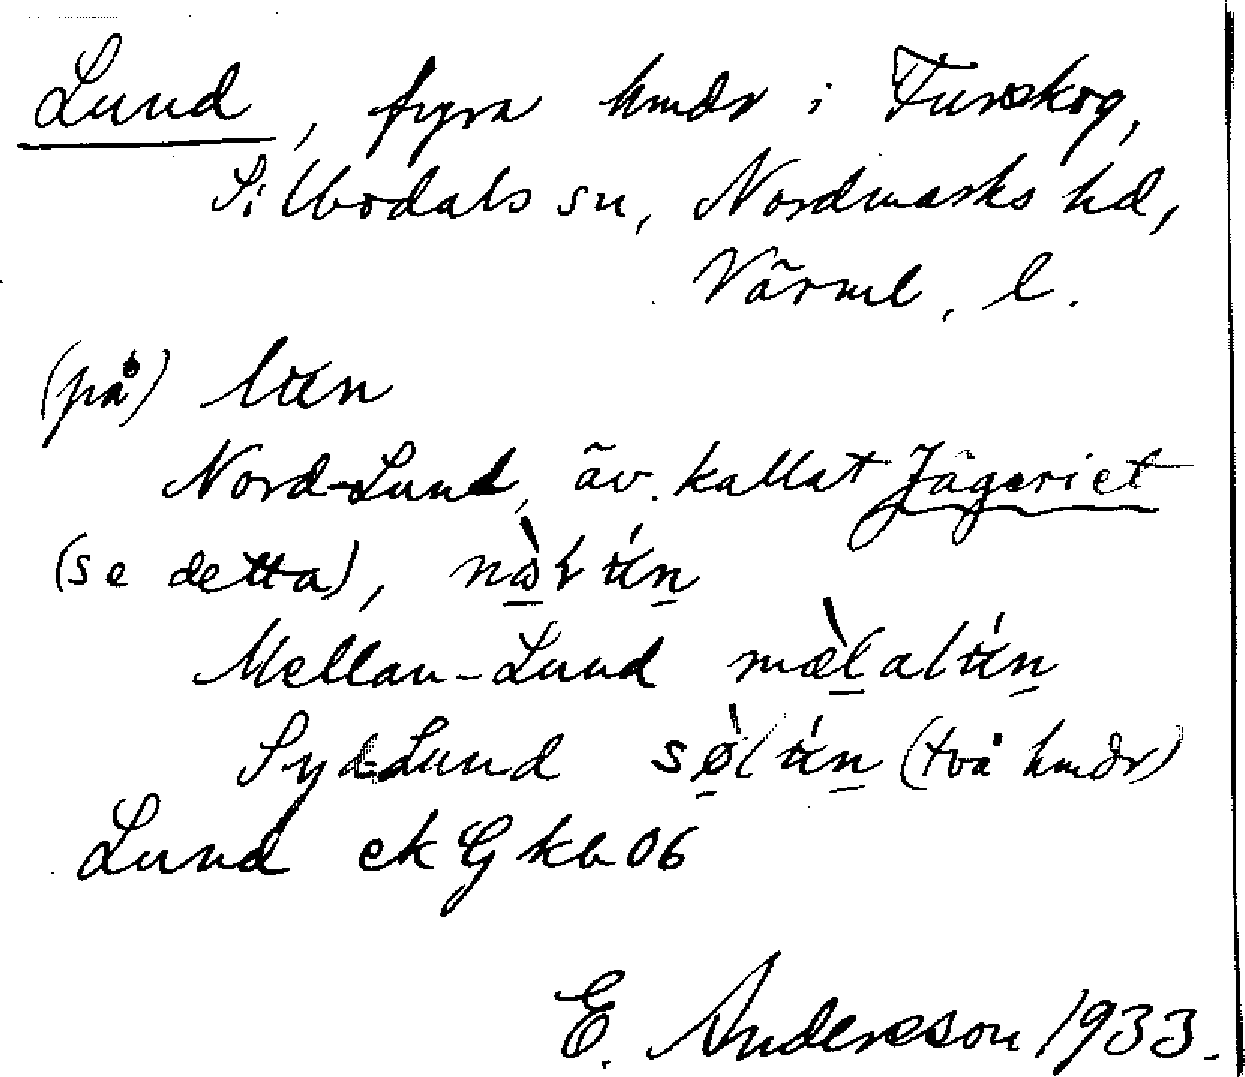 Lund, fyra hmdr i Furskog,
Silbodals sn, Nordmarks hd,
Värml. l.
(på) lun
Nord-Lund, äv. kallat Jägeriet
(se detta),
Mellan-Lund
Syd-Lund (två hmdr)
Lund ek G kb 06
E. Andersson 1933.